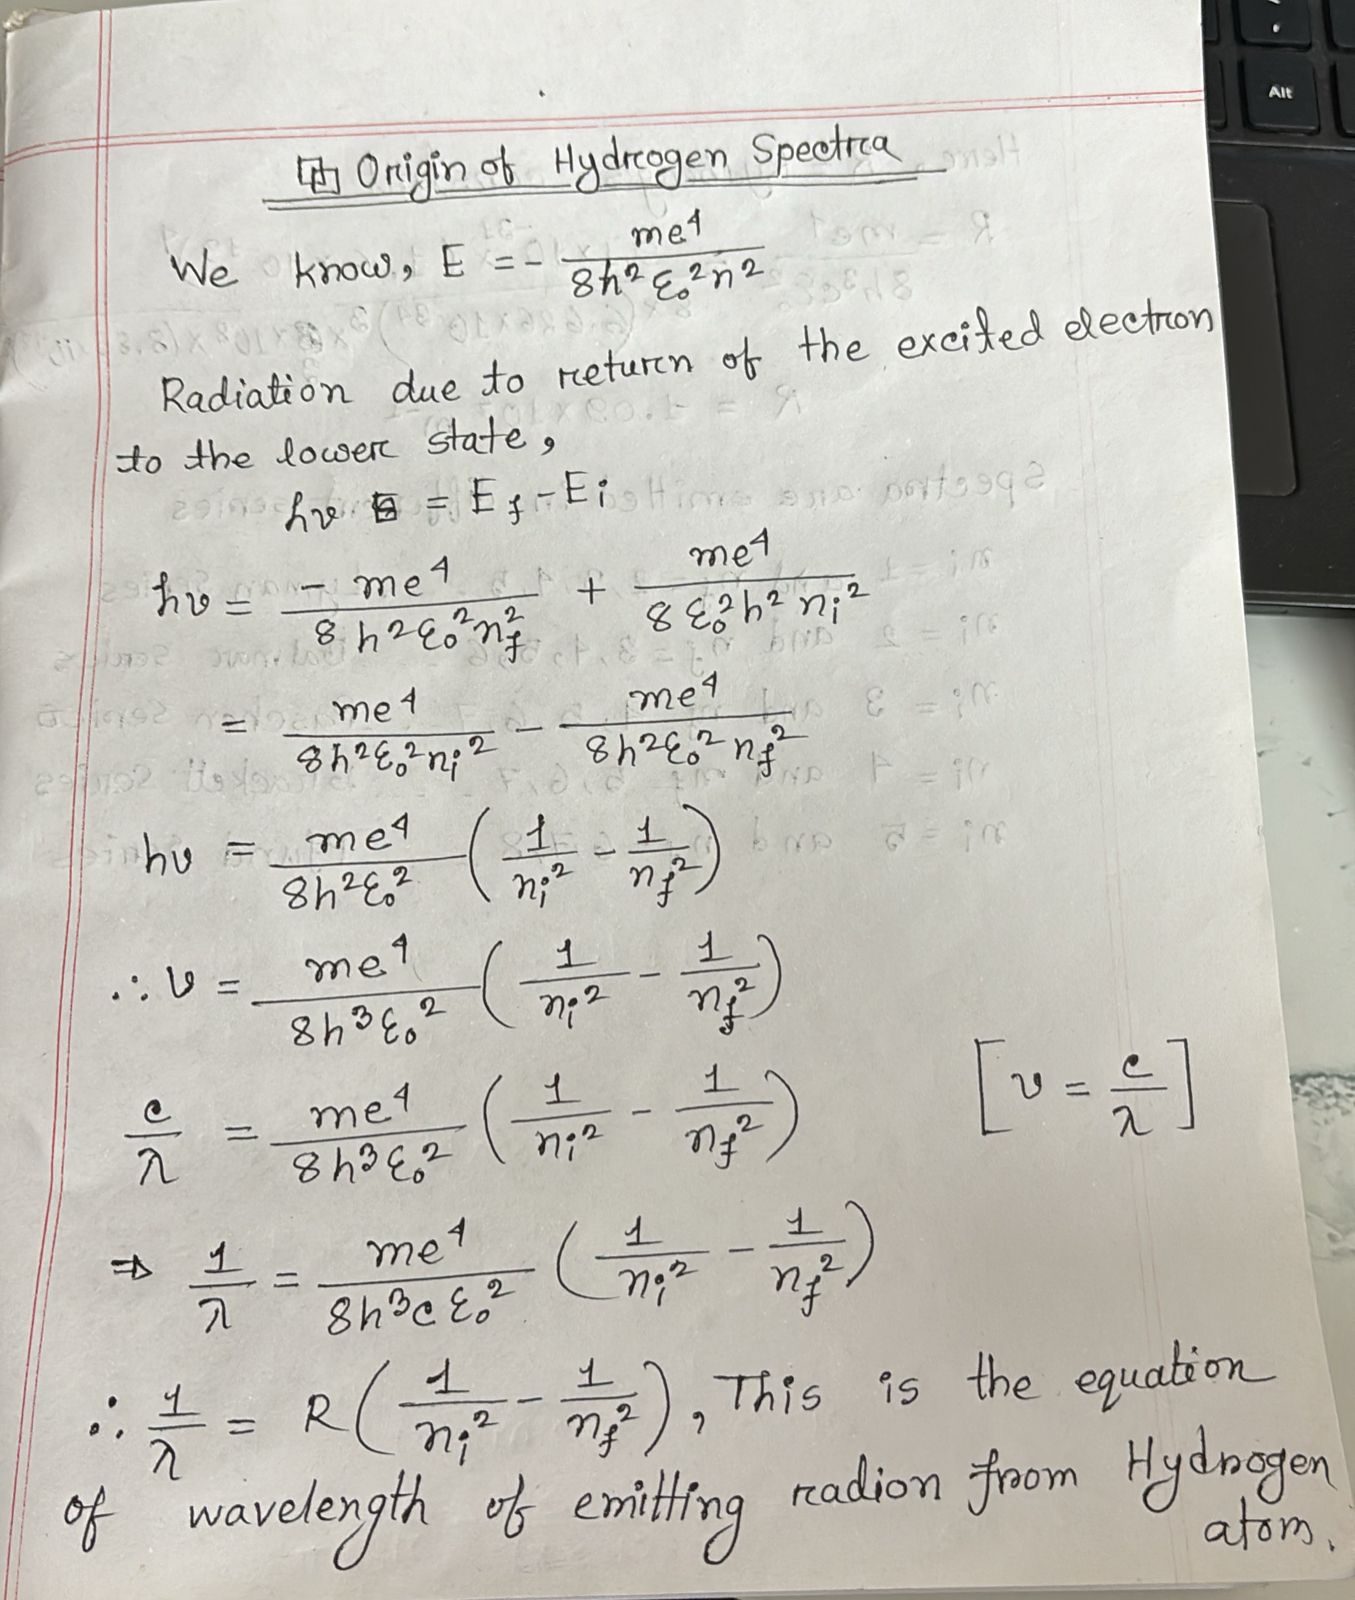 Origin of Hydrogen Spectra
We know, E = - me⁴ / 8h²ε₀²n²
Radiation due to return of the excited electron
to the lower state,
hν = E_f - E_i
hν = - me⁴ / 8h²ε₀²n_f² + me⁴ / 8ε₀²h²n_i²
= me⁴ / 8h²ε₀²n_i² - me⁴ / 8h²ε₀²n_f²
hν = me⁴ / 8h²ε₀² (1/n_i² - 1/n_f²)
∴ ν = me⁴ / 8h³ε₀² (1/n_i² - 1/n_f²)
c/λ = me⁴ / 8h³ε₀² (1/n_i² - 1/n_f²) [ν = c/λ]
⇒ 1/λ = me⁴ / 8h³cε₀² (1/n_i² - 1/n_f²)
∴ 1/λ = R(1/n_i² - 1/n_f²), This is the equation
of wavelength of emitting radion from Hydrogen
atom.
Alt